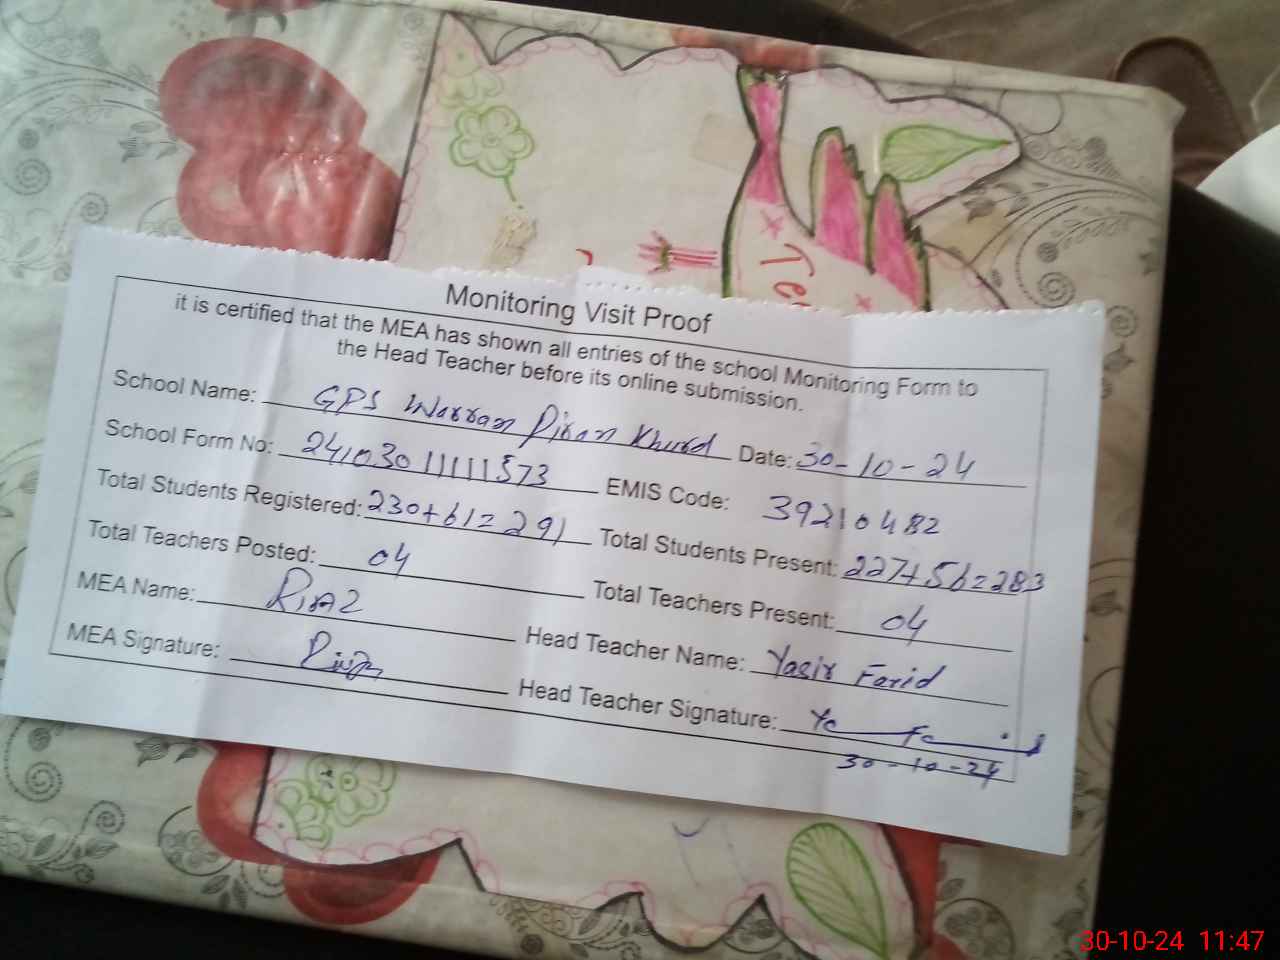 Te
Monitoring Visit Proof
it is certified that the MEA has shown all entries of the school Monitoring Form to
the Head Teacher before its online submission.
School Name: GPS Warran Diran Khurd Date: 30-10-24
School Form No: 24103011111573 EMIS Code: 39210482
Total Students Registered: 230+61=291 Total Students Present: 227+56=283
Total Teachers Posted: 04 Total Teachers Present: 04
MEA Name: Riaz Head Teacher Name: Yasir Farid
MEA Signature: Riaz Head Teacher Signature:
30-10-24
30-10-24 11:47